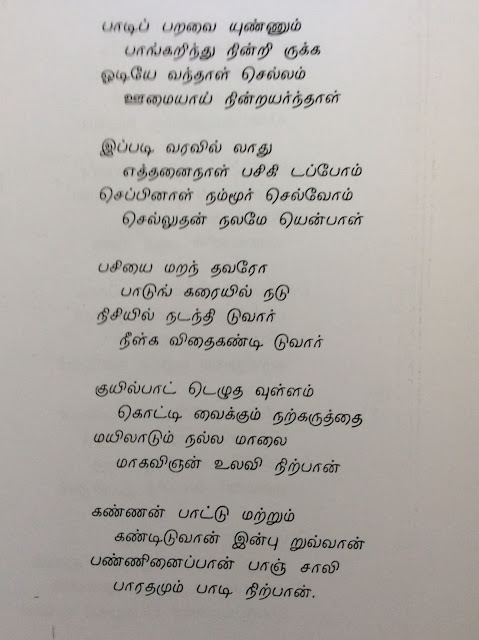 பாடிப் பறவை யுண்ணும்
பாங்கறிந்து நின்றி ருக்க
ஓடியே வந்தாள் செல்லம்
ஊமையாய் நின்றயர்ந்தாள்
இப்படி வரவில் லாது
எத்தனைநாள் பசிகி டப்போம்
செப்பினாள் நம்மூர் செல்வோம்
செல்லுதன் நலமே யென்பாள்
பசியை மறந் தவரோ
பாடுங் கரையில் நடு
நிசியில் நடந்தி டுவார்
நீள்க விதைகண்டி டுவார்
குயில்பாட் டெழுத வுள்ளம்
கொட்டி வைக்கும் நற்கருத்தை
மயிலாடும் நல்ல மாலை
மாகவிஞன் உலவி நிற்பான்
கண்ணன் பாட்டு மற்றும்
கண்டிடுவான் இன்பு றுவ்வான்
பண்ணினைப்பான் பாஞ் சாலி
பாரதமும் பாடி நிற்பான்.